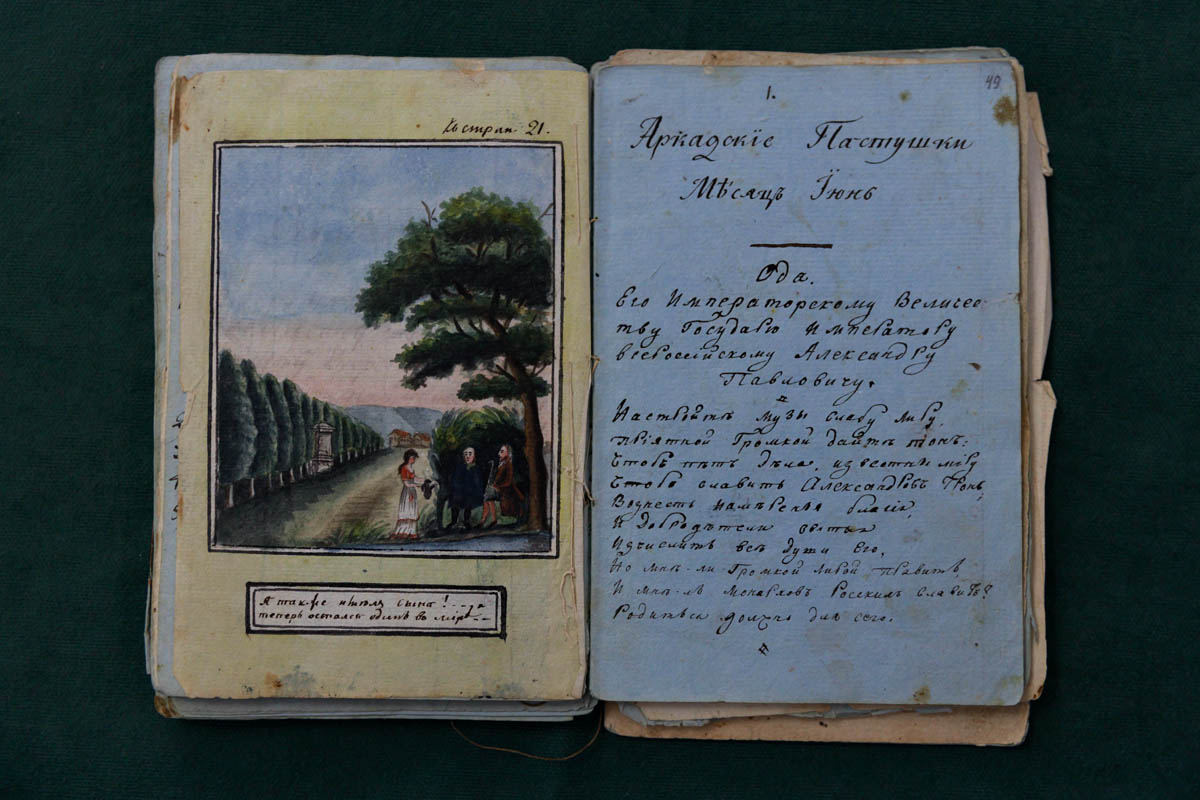 Къ стран. 21.
Я так-же имѣлъ сына!
теперь остался одинъ во мірѣ
49
1.
Аркадскіе Пастушки
Мѣсяцъ Іюнь
Ода.
Его Императорскому Величес
тву Государю Императору
всероссійскому Александру
Павловичу.
Настройтѣ музы слабу лиру,
пріятной громкой дайтѣ тонъ;
Чтобъ пѣть дѣла, извѣстны міру
Чтобъ славить Александровъ Тронъ,
Вознесть намѣренья благія,
И добродѣтели святыя
Изчислить всѣ души Его,
Но мнѣ-ли громкой лирой править
И мнѣ-ль Монарховъ Росскихъ славить?
Родиться должно для сего.